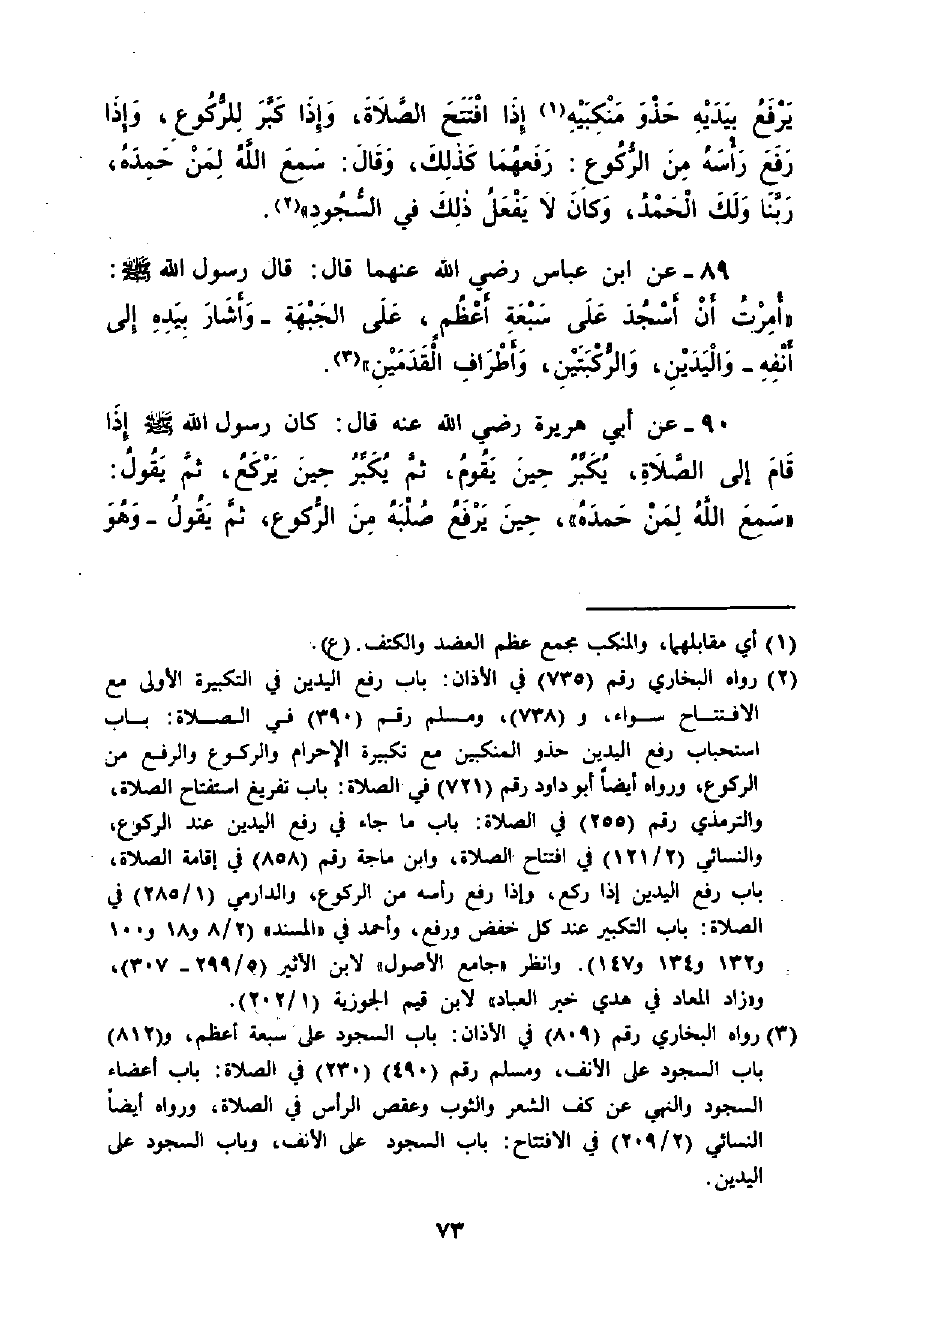 يَرْفَعُ بِيَدَيْهِ حَذْوَ مَنْكِبَيْهِ(١) إِذَا افْتَتَحَ الصَّلَاةَ، وَإِذَا كَبَّرَ لِلرُّكُوعِ، وَإِذَا
رَفَعَ رَأْسَهُ مِنَ الرُّكُوعِ: رَفَعَهُمَا كَذٰلِكَ، وَقَالَ: سَمِعَ اللَّهُ لِمَنْ حَمِدَهُ،
رَبَّنَا وَلَكَ الْحَمْدُ، وَكَانَ لَا يَفْعَلُ ذٰلِكَ في السُّجُودِ»(٢).
٨٩ ـ عن ابن عباس رضي الله عنهما قال: قال رسول الله ﷺ:
«أُمِرْتُ أَنْ أَسْجُدَ عَلَى سَبْعَةِ أَعْظُمٍ، عَلَى الْجَبْهَةِ ـ وَأَشَارَ بِيَدِهِ إِلى
أَنْفِهِ ـ وَالْيَدَيْنِ، وَالرُّكْبَتَيْنِ، وَأَطْرَافِ الْقَدَمَيْنِ»(٣).
٩٠ ـ عن أبي هريرة رضي الله عنه قال: كان رسول الله ﷺ إِذَا
قَامَ إِلى الصَّلَاةِ، يُكَبِّرُ حِينَ يَقُومُ، ثُمَّ يُكَبِّرُ حِينَ يَرْكَعُ، ثُمَّ يَقُولُ:
«سَمِعَ اللَّهُ لِمَنْ حَمِدَهُ»، حِينَ يَرْفَعُ صُلْبَهُ مِنَ الرُّكوعِ، ثُمَّ يَقُولُ ـ وَهُوَ
(١) أي مقابلهما، والمنكب مجمع عظم العضد والكتف. (ع).
(٢) رواه البخاري رقم (٧٣٥) في الأذان: باب رفع اليدين في التكبيرة الأولى مع
الافتتاح سواء، و (٧٣٨)، ومسلم رقم (٣٩٠) في الصلاة: باب
استحباب رفع اليدين حذو المنكبين مع تكبيرة الإحرام والركوع والرفع من
الركوع، ورواه أيضاً أبو داود رقم (٧٢١) في الصلاة: باب تفريغ استفتاح الصلاة،
والترمذي رقم (٢٥٥) في الصلاة: باب ما جاء في رفع اليدين عند الركوع،
والنسائي (١٢١/٢) في افتتاح الصلاة، وابن ماجة رقم (٨٥٨) في إقامة الصلاة،
باب رفع اليدين إذا ركع، وإذا رفع رأسه من الركوع، والدارمي (٢٨٥/١) في
الصلاة: باب التكبير عند كل خفض ورفع، وأحمد في «المسند» (٨/٢ و١٨ و١٠٠
و١٣٢ و١٣٤ و١٤٧). وانظر «جامع الأصول» لابن الأثير (٢٩٩/٥ ـ ٣٠٧)،
و«زاد المعاد في هدي خير العباد» لابن قيم الجوزية (٢٠٢/١).
(٣) رواه البخاري رقم (٨٠٩) في الأذان: باب السجود على سبعة أعظم، و(٨١٢)
باب السجود على الأنف، ومسلم رقم (٤٩٠) (٢٣٠) في الصلاة: باب أعضاء
السجود والنهي عن كف الشعر والثوب وعقص الرأس في الصلاة، ورواه أيضاً
النسائي (٢٠٩/٢) في الافتتاح: باب السجود على الأنف، وباب السجود على
اليدين.
٧٣